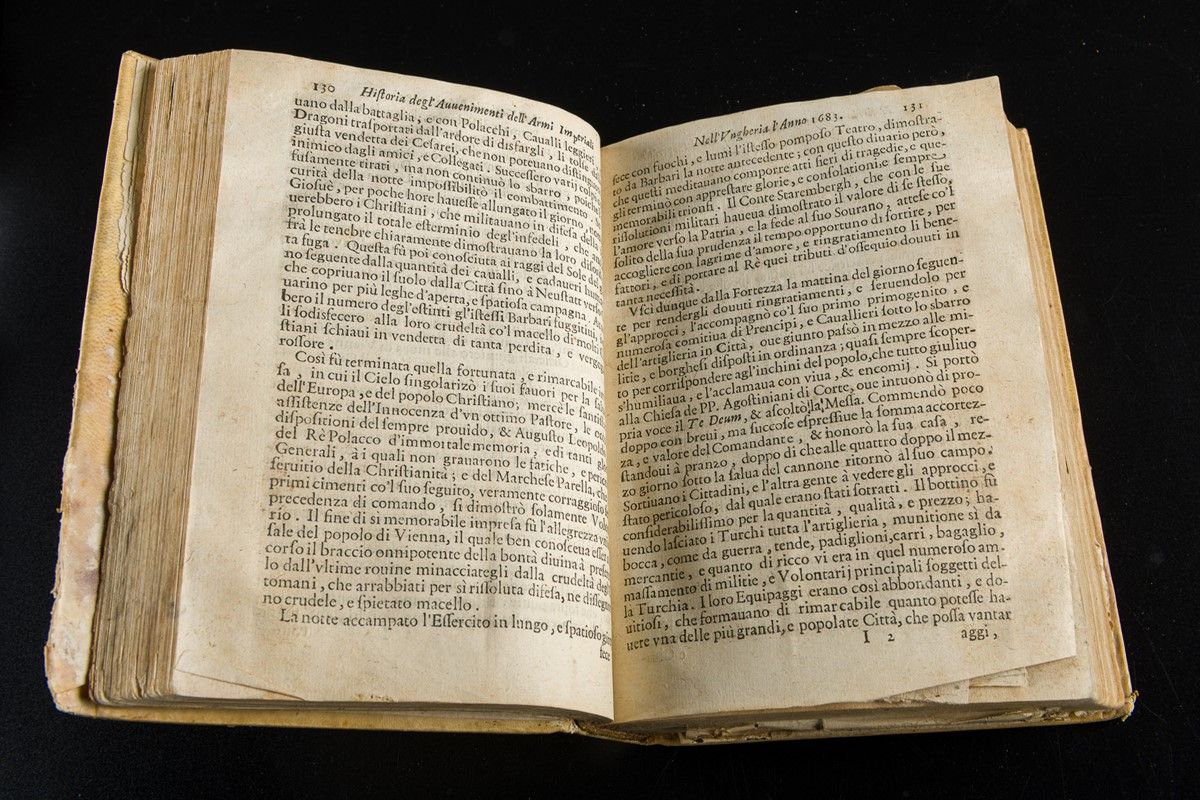 130 Hiſtoria degl'Auuenimenti dell'Armi Imperiali
uano dalla battaglia, e con Polacchi, Caualli leggieri,
Dragoni traſportati dall'ardore di disfargli, li tolſe
giuſta vendetta de Ceſarei, che non poteuano diſtinguere
inimico dagli amici, e Collegati. Succeſſero varij colpi
fuſamente tirati, ma non continuò lo sbarro, poiche
curità della notte impoſſibilitò il combattimento.
Gioſuè, per poche hore haueſſe allungato il giorno,
uerebbero i Chriſtiani, che militauano in difeſa della
prolungato il totale eſterminio degl'infedeli, che
frà le tenebre chiaramente dimoſtrauano la loro
ta fuga. Queſta fù poi conoſciuta ai raggi del Sole del
no ſeguente dalla quantità dei caualli, e cadaueri humani
che copriuano il ſuolo dalla Città ſino à Neuſtatt verſo
uarino per più leghe d'aperta, e ſpatioſa campagna.
bero il numero degl'eſtinti gl'iſteſſi Barbari fuggitiui,
li ſodisfecero alla loro crudeltà co'l macello di molti
ſtiani ſchiaui in vendetta di tanta perdita, e vergognoſo
roſſore.
Così fù terminata quella fortunata, e rimarcabile
ſa, in cui il Cielo ſingolarizò i ſuoi fauori per la
dell'Europa, e del popolo Chriſtiano; mercè le ſantiſſime
aſſiſtenze dell'Innocenza d'vn ottimo Paſtore, le
diſpoſitioni del ſempre prouido, & Auguſto Leopoldo
del Rè Polacco d'immortale memoria, e di tanti
Generali, à i quali non grauarono le fatiche, e pericoli
ſeruitio della Chriſtianità; e del Marcheſe Parella, che
primi cimenti co'l ſuo ſeguito, veramente corraggioſo
precedenza di comando, ſi dimoſtrò ſolamente Volonta-
rio. Il fine di si memorabile impreſa fù l'allegrezza
ſale del popolo di Vienna, il quale ben conoſceua eſſer
corſo il braccio onnipotente della bontà diuina à
lo dall'vltime rouine minacciategli dalla crudeltà degl'
tomani, che arrabbiati per sì riſſoluta difeſa, ne
no crudele, e ſpietato macello.
La notte accampato l'Eſſercito in lungo, e ſpatioſo giro
fece
Nell'Vngheria l'Anno 1683. 131
fece con fuochi, e lumi l'iſteſſo pompoſo Teatro, dimoſtra-
to da Barbari la notte antecedente; con queſto diuario però,
che queſti meditauano comporre atti fieri di tragedie, e que-
gli terminò con appreſtare glorie, e conſolationi e ſempre
memorabili trionfi. Il Conte Starembergh, che con le ſue
riſſolutioni militari haueua dimoſtrato il valore di ſe ſteſſo,
l'amore verſo la Patria, e la fede al ſuo Sourano, atteſe co'l
ſolito della ſua prudenza il tempo opportuno di ſortire, per
accogliere con lagrime d'amore, e ringratiamento li bene-
fattori, e di portare al Rè quei tributi d'oſſequio douuti in
tanta neceſſità.
Vſci dunque dalla Fortezza la mattina del giorno ſeguen-
te per rendergli douuti ringratiamenti, e ſeruendolo per
gl'approcci, l'accompagnò co'l ſuo primo primogenito, e
numeroſa comitiua di Prencipi, e Cauallieri ſotto lo sbarro
dell'artiglieria in Città, oue giunto paſsò in mezzo alle mi-
litie, e borgheſi diſpoſti in ordinanza; quaſi ſempre ſcoper-
to per corriſpondere agl'inchini del popolo, che tutto giuliuo
s'humiliaua, e l'acclamaua con viua, & encomij. Si portò
alla Chieſa de PP. Agoſtiniani di Corte, oue intuonò di pro-
pria voce il Te Deum, & aſcoltò la Meſſa. Commendò poco
doppo con breui, ma ſuccoſe eſpreſſiue la ſomma accortez-
za, e valore del Comandante, & honorò la ſua caſa, re-
ſtandoui à pranzo, doppo di che alle quattro doppo il mez-
zo giorno ſotto la ſalua del cannone ritornò al ſuo campo.
Sortiuano i Cittadini, e l'altra gente à vedere gli approcci, e
ſtato pericoloſo, dal quale erano ſtati ſotratti. Il bottino fù
conſiderabiliſſimo per la quantità, qualità, e prezzo; ha-
uendo laſciato i Turchi tutta l'artiglieria, munitione sì da
bocca, come da guerra, tende, padiglioni, carri, bagaglio,
mercantie, e quanto di ricco vi era in quel numeroſo am-
maſſamento di militie, e Volontarij principali ſoggetti del-
la Turchia. I loro Equipaggi erano così abbondanti, e do-
uitioſi, che formauano di rimarcabile quanto poteſſe ha-
uere vna delle più grandi, e popolate Città, che poſſa vantar
I 2 aggi,